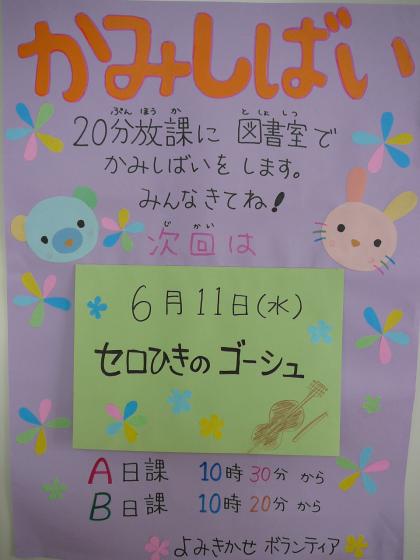 かみしばい
20分放課に 図書室で
かみしばいを します。
みんなきてね!
次回は
6月11日(水)
セロひきの ゴーシュ
A日課 10時30分から
B日課 10時20分から
よみきかせ ボランティア